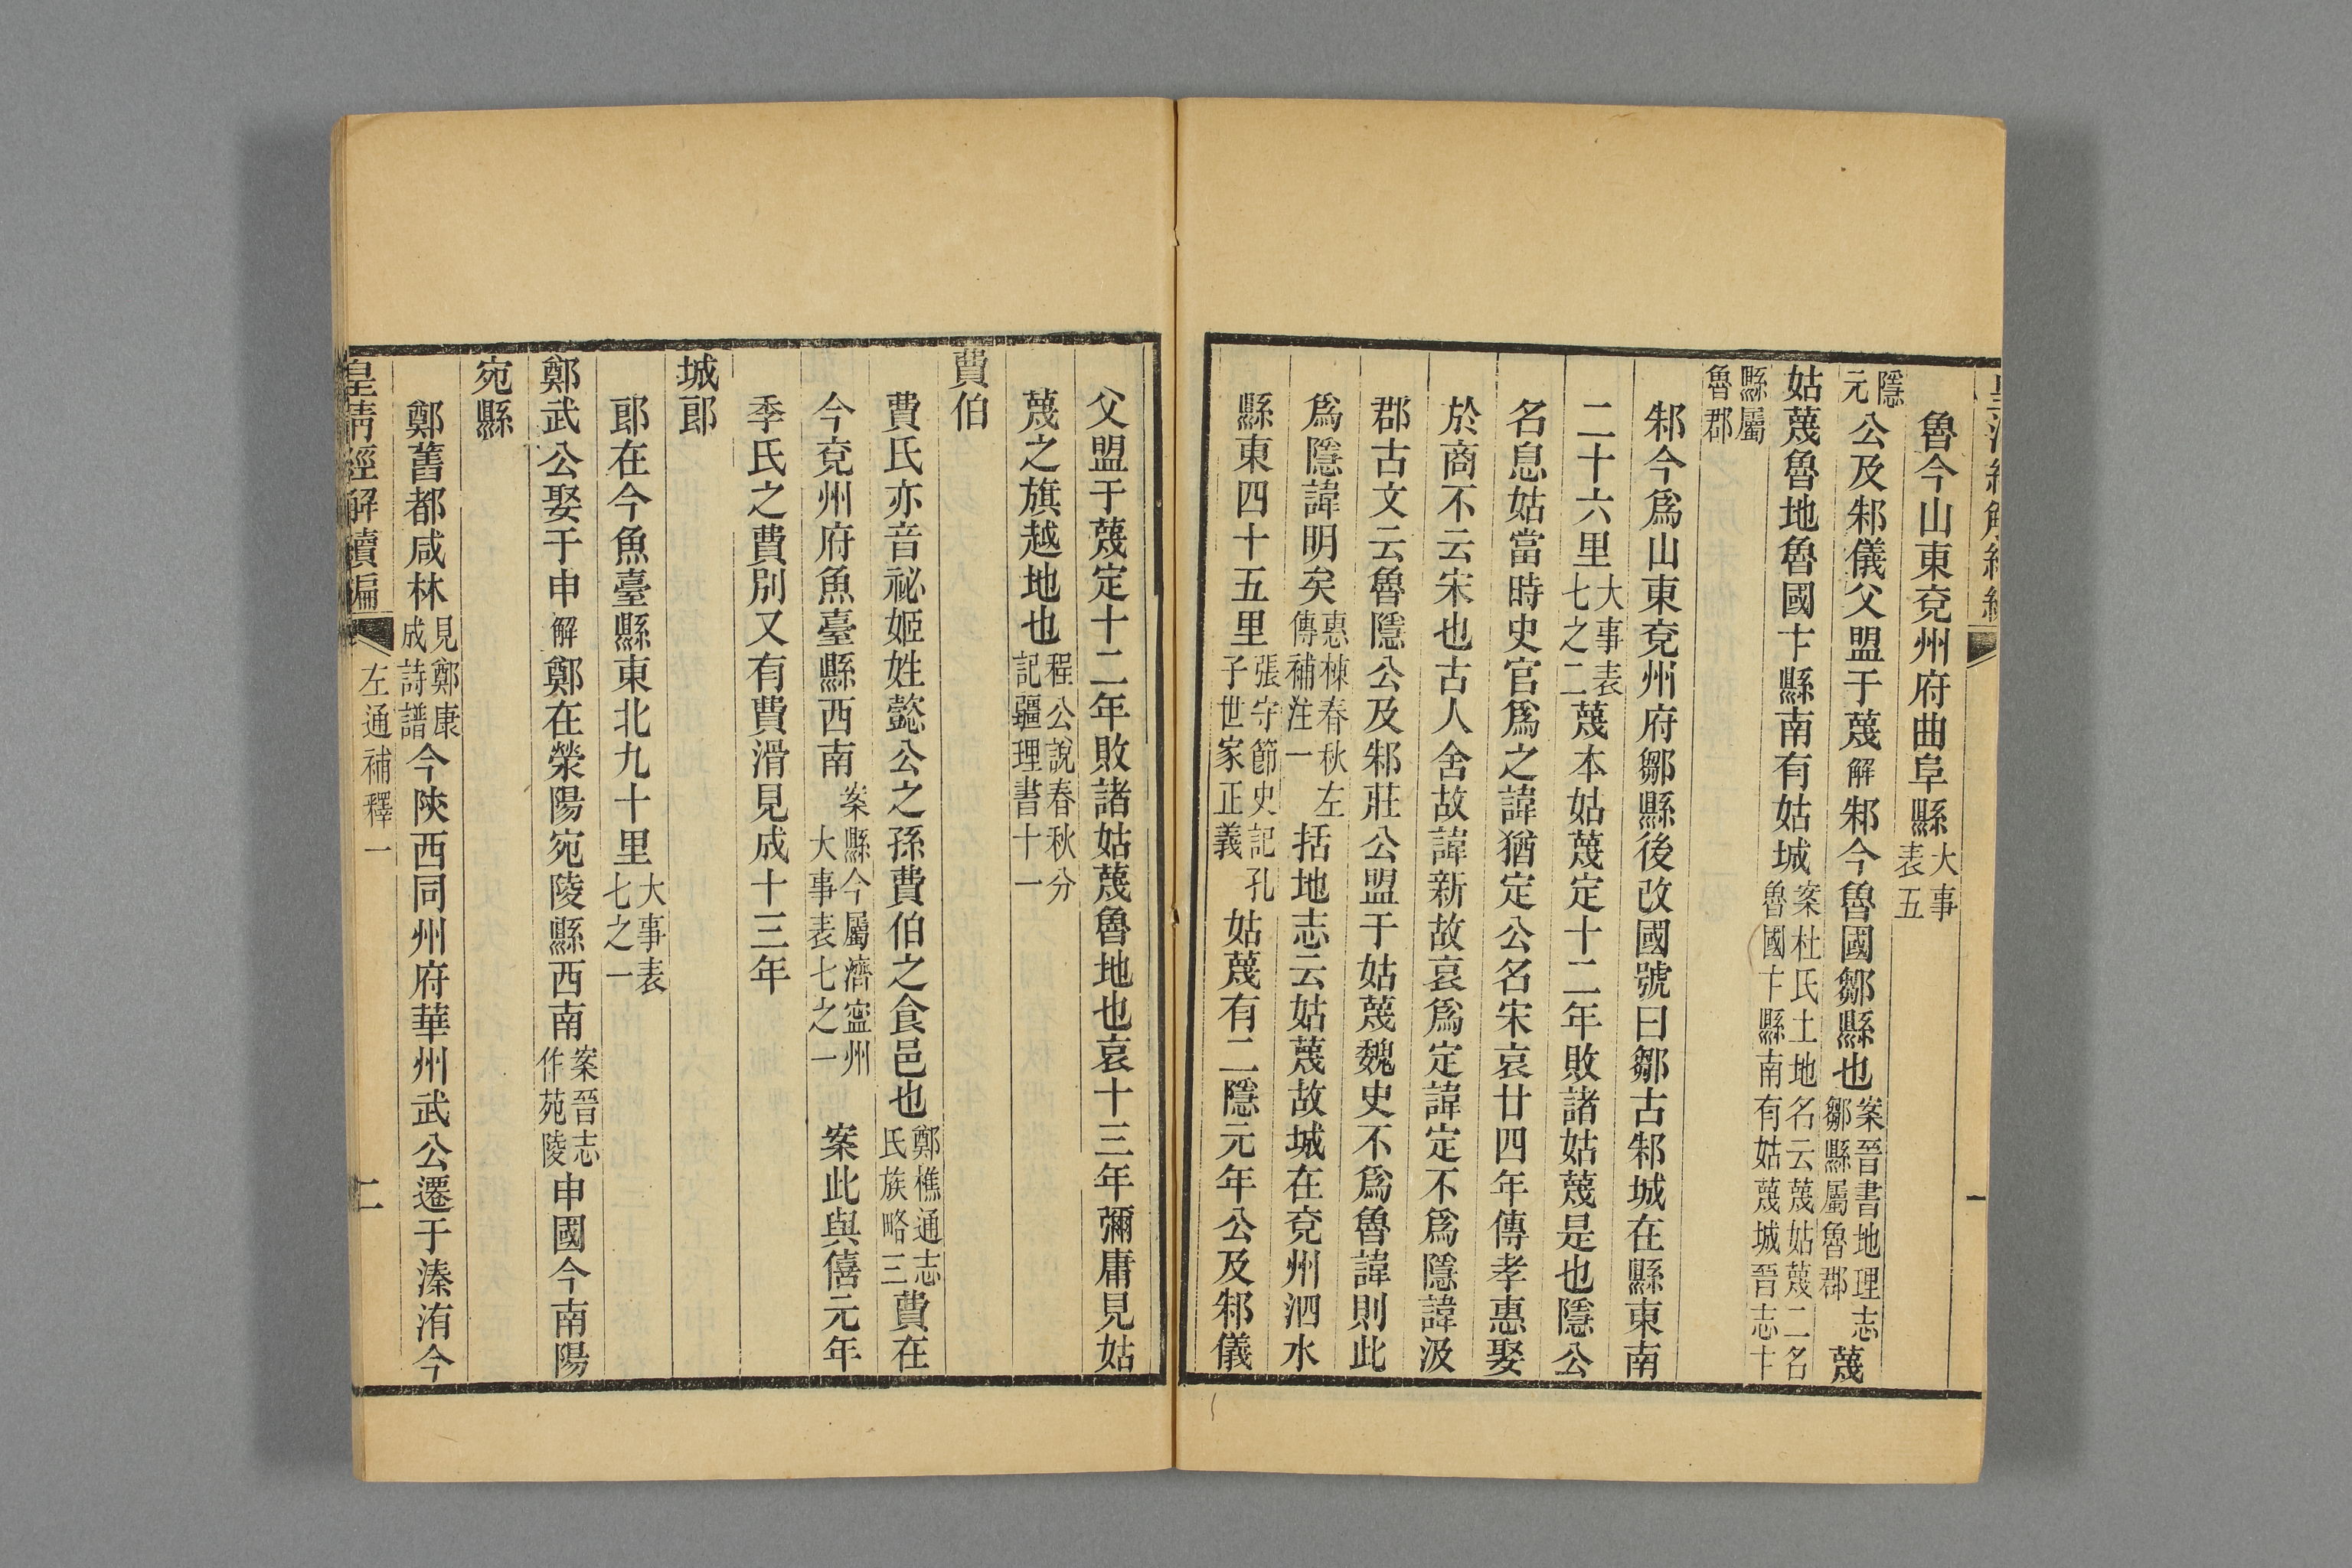 魯今山東兗州府曲阜縣大事表五
隱元公及邾儀父盟于蔑解邾今魯國鄒縣也案晉書地理志鄒縣屬魯郡蔑
姑蔑魯地魯國卞縣南有姑城案杜氏土地名云蔑姑蔑二名魯國卞縣南有姑蔑城晉志卞
縣屬魯郡
邾今爲山東兗州府鄒縣後改國號曰鄒古邾城在縣東南
二十六里大事表七之二蔑本姑蔑定十二年敗諸姑蔑是也隱公
名息姑當時史官爲之諱猶定公名宋哀廿四年傳孝惠娶
於商不云宋也古人舍故諱新故哀爲定諱定不爲隱諱汲
郡古文云魯隱公及邾莊公盟于姑蔑魏史不爲魯諱則此
爲隱諱明矣惠棟春秋左傳補注一括地志云姑蔑故城在兗州泗水
縣東四十五里張守節史記孔子世家正義姑蔑有二隱元年公及邾儀
一
父盟于蔑定十二年敗諸姑蔑魯地也哀十三年彌庸見姑
蔑之旗越地也程公說春秋分記疆理書十一
費伯
費氏亦音祕姬姓懿公之孫費伯之食邑也鄭樵通志氏族略三費在
今兗州府魚臺縣西南案縣今屬濟寍州大事表七之一案此與僖元年
季氏之費別又有費滑見成十三年
城郎
郎在今魚臺縣東北九十里大事表七之一
鄭武公娶于申解鄭在滎陽宛陵縣西南案晉志作苑陵申國今南陽
宛縣
鄭舊都咸林見鄭康成詩譜今陝西同州府華州武公遷于溱洧今
皇清經解續編 左通補釋一 二